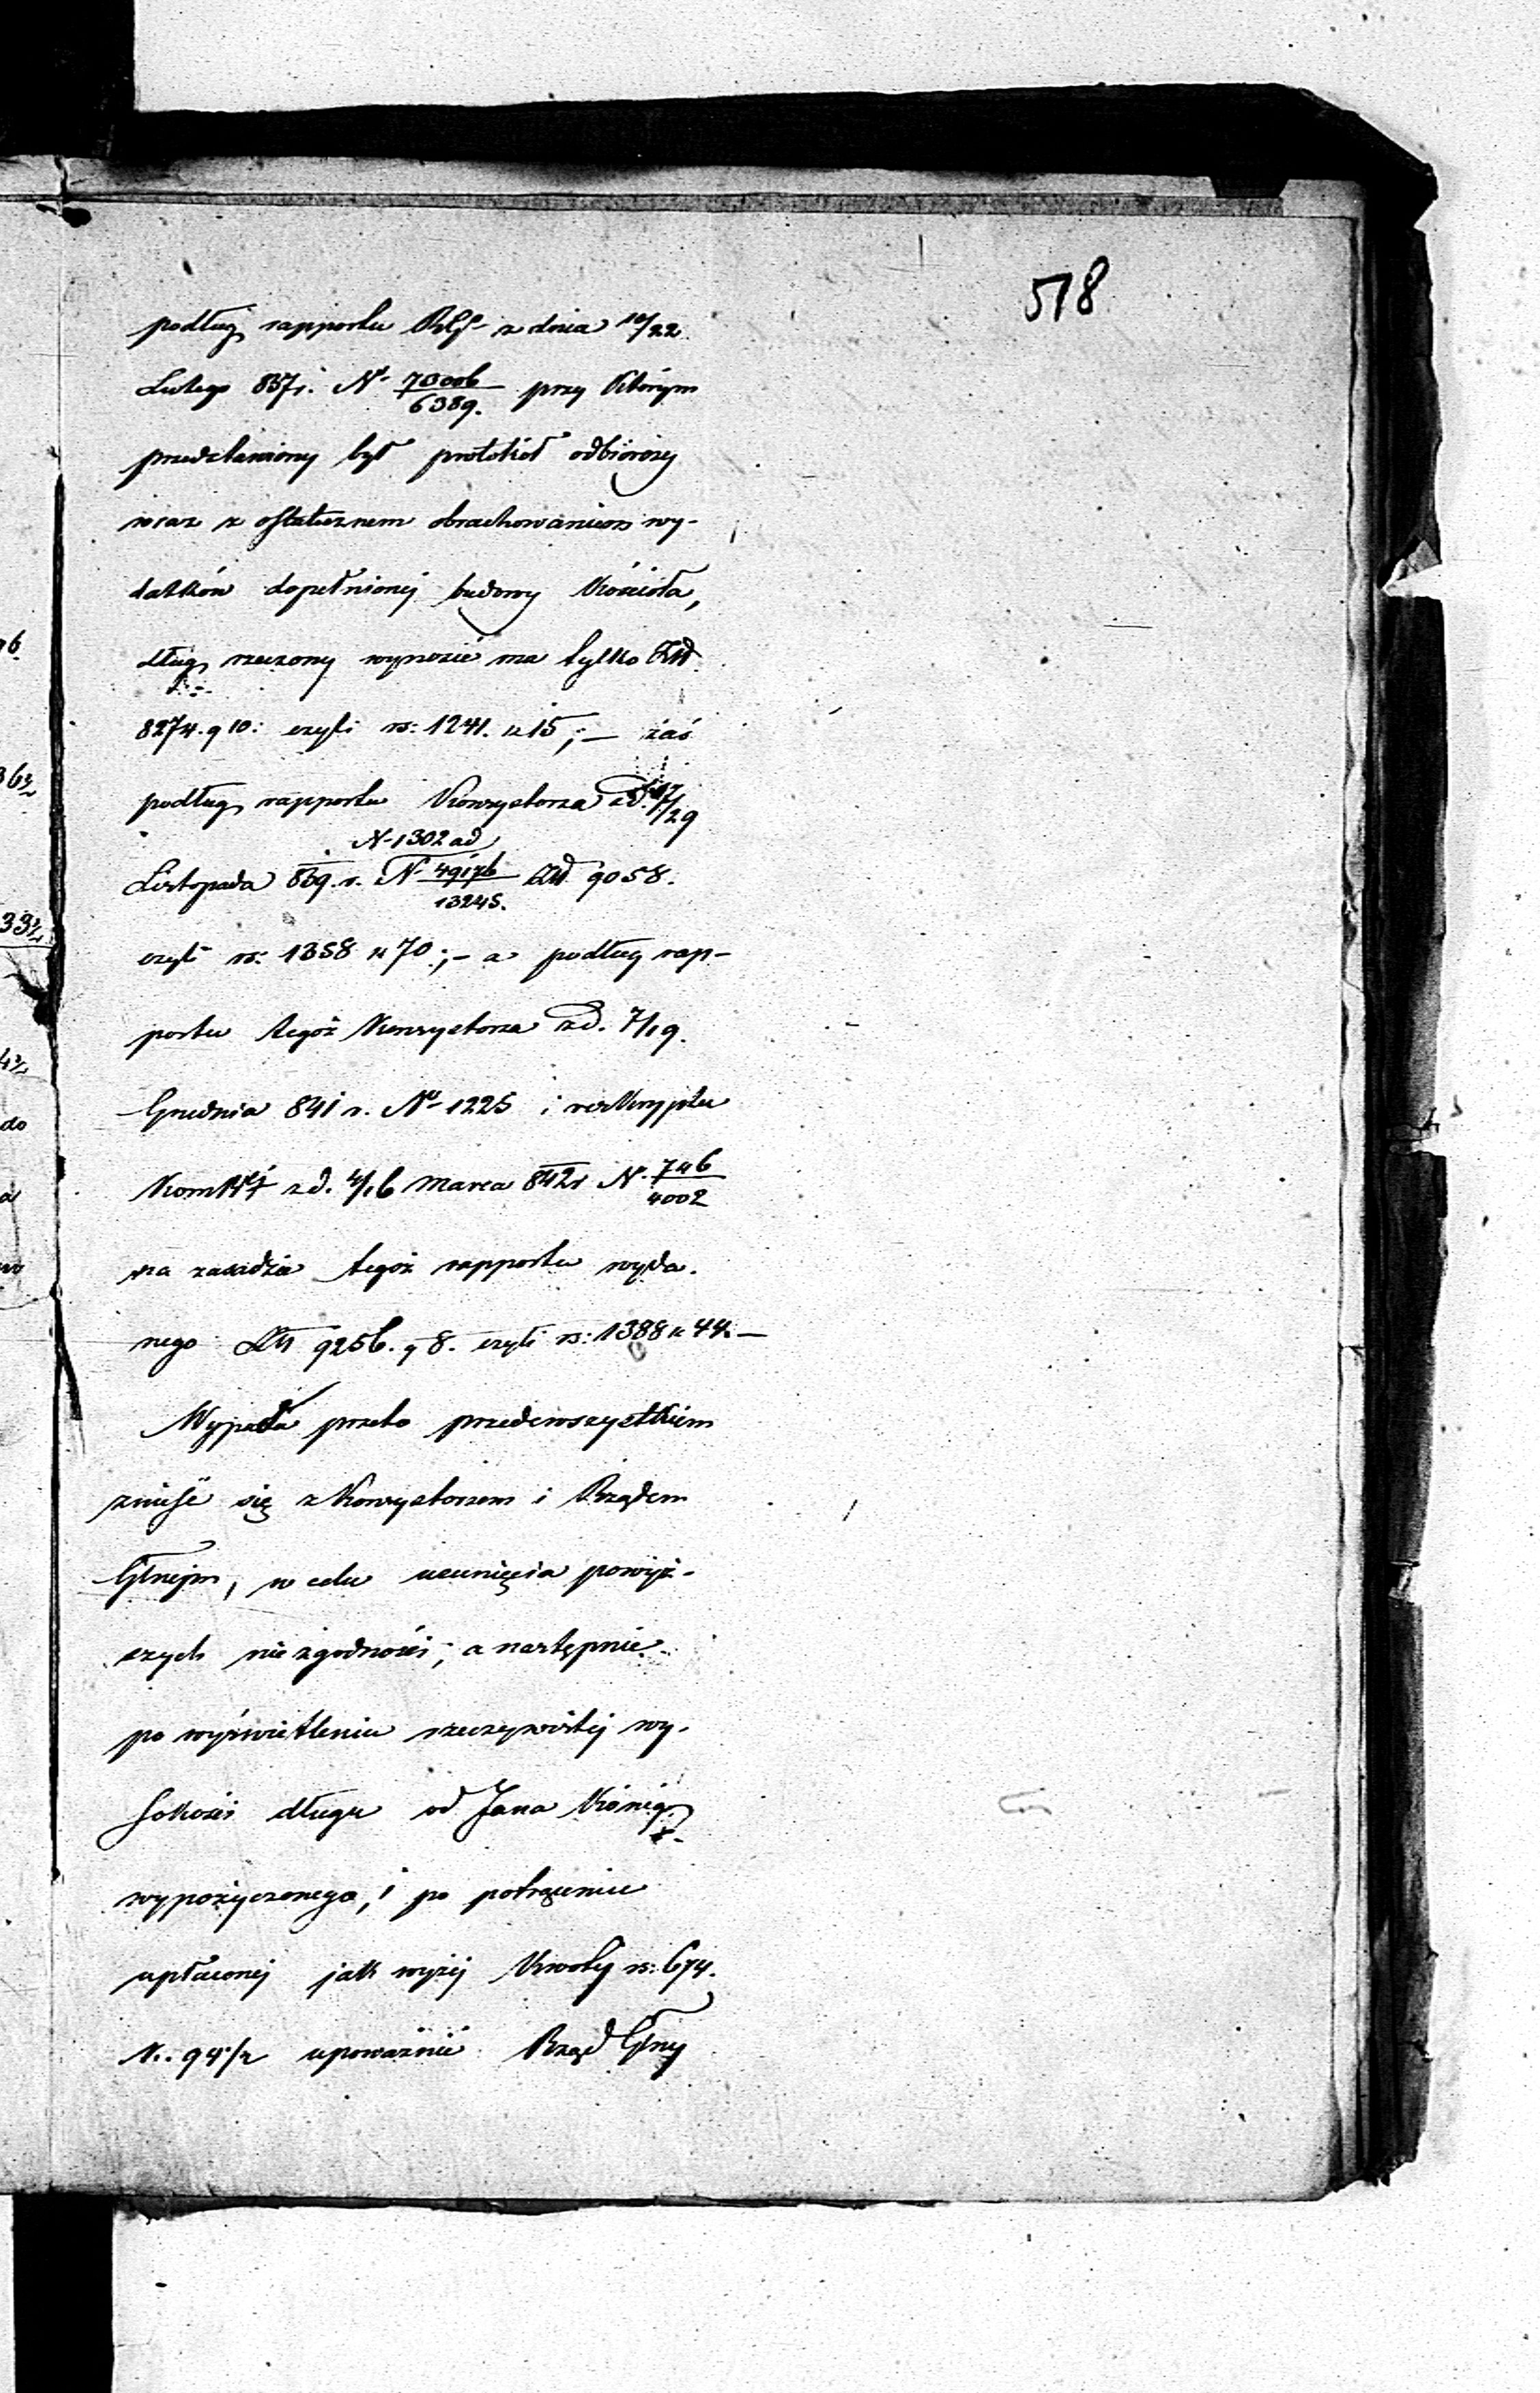 518
podług rapportu RGo z dnia 10/22
Lutego 837 r. No 70006/6389. przy którym
przedstawiony był protokół odbiorczy
wraz z ostatecznem obrachowaniem wy-
datków dopełnionej budowy Kościoła,
dług rzeczony wynosić ma tylko Złł
8274. g 10: czyli rs: 1241. k 15; — zaś
podług rapportu Konsystorza z d. 17/29
N. 1302 ad
Listopada 839. r. N. 49176/13245. Złł 9058.
czyli rs: 1358 k 70; — a podług rap-
portu tegoż Konsystorza z d. 7/19.
Grudnia 841 r. No 1225 i reskryptu
z d. 4/16 Marca 842 r N. 746/4002
na zasadzie tegoż rapportu wyda-
nego Złł 9256. g 8. czyli rs: 1388 k 44. —
Wypada przeto przedewszystkiem
znieść się z Konsystorzem i Rządem
Głnejm, w celu usunięcia powyż-
szych niezgodności; a następnie
po wyświetleniu rzeczywistej wy-
sokości długu od Jana König
wypożyczonego, i po potrąceniu
upłaconej jak wyżej Kwoty rs: 674.
k. 94 1/2 upoważnić Rząd Glny